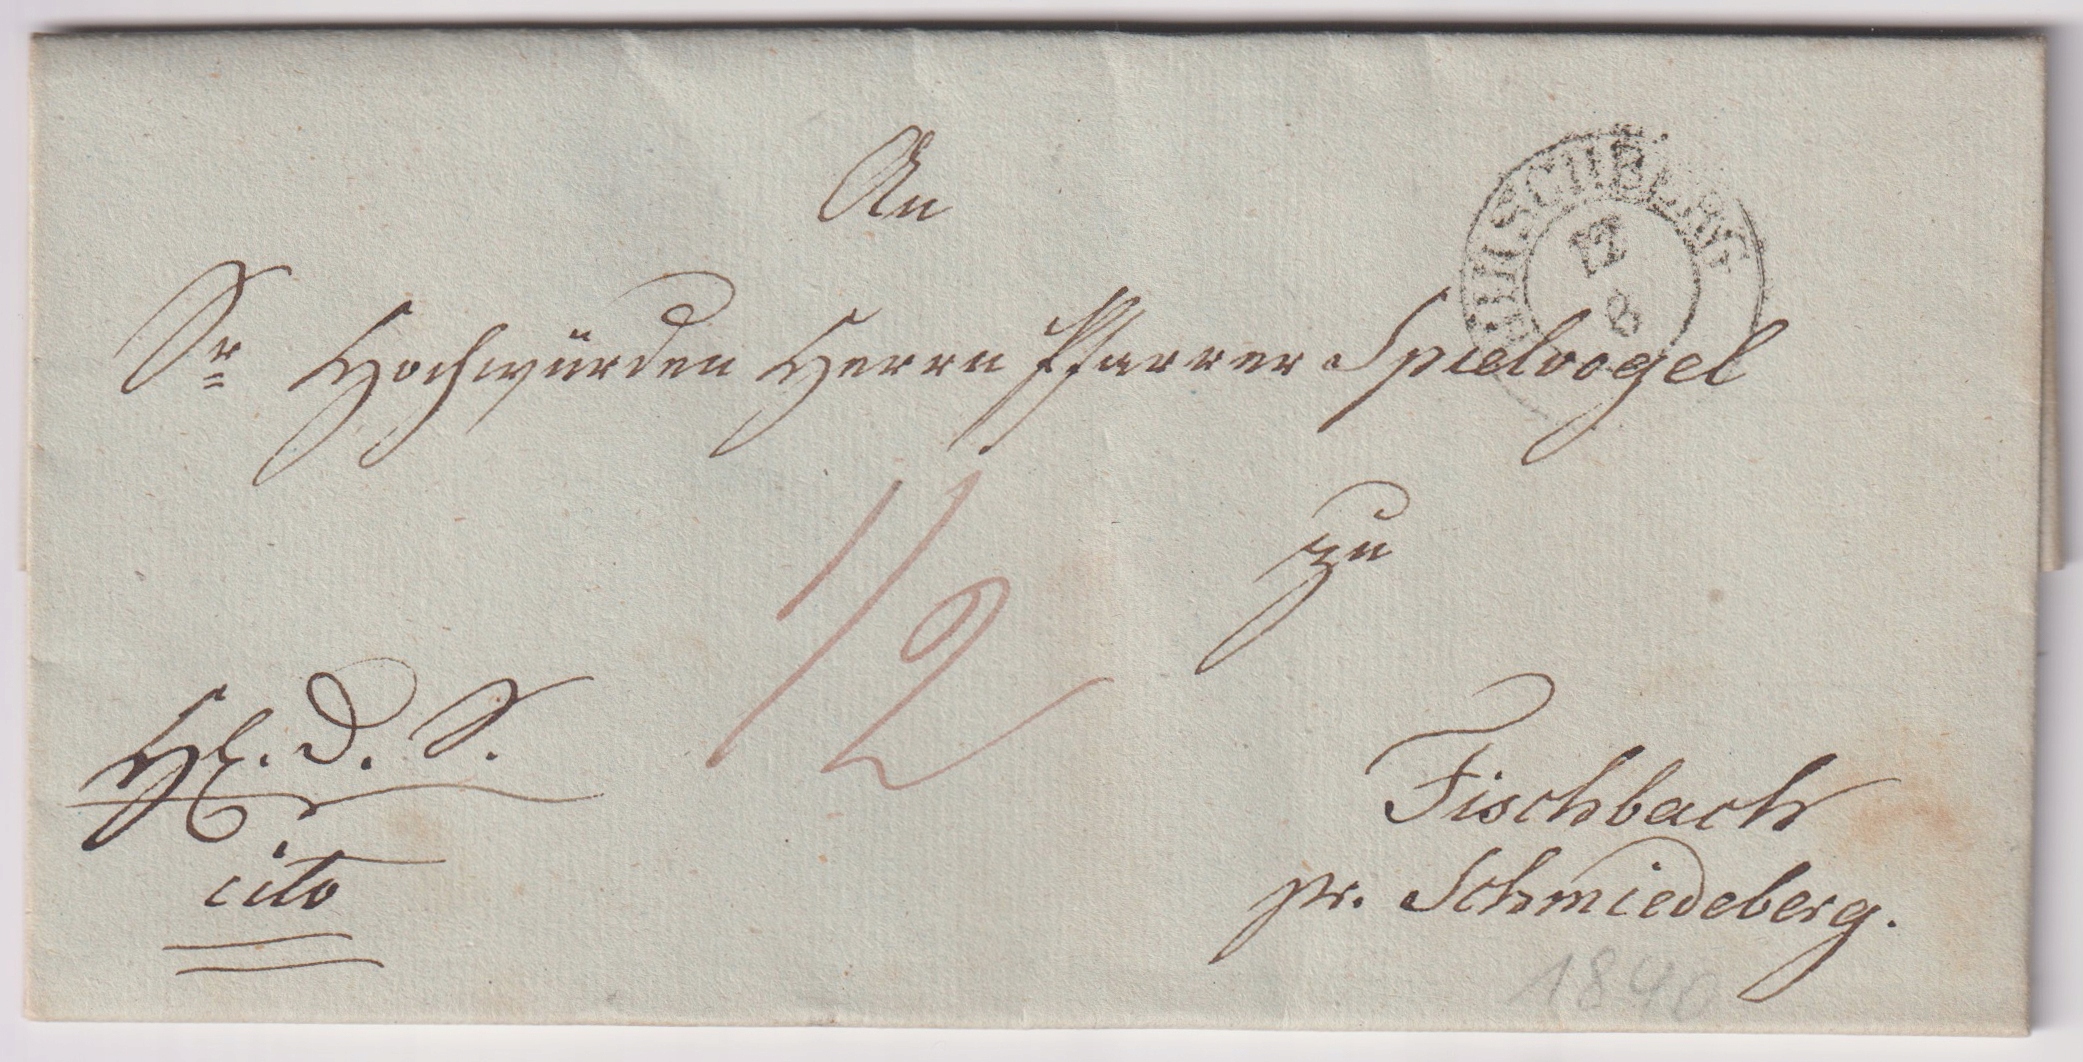 An
HIRSCHBERG
12
8
Sr Hochwürden Herrn Pfarrer Spielvogel
1/2
zu
H. D. S.
Fischbach
cito
pr. Schmiedeberg.
1840